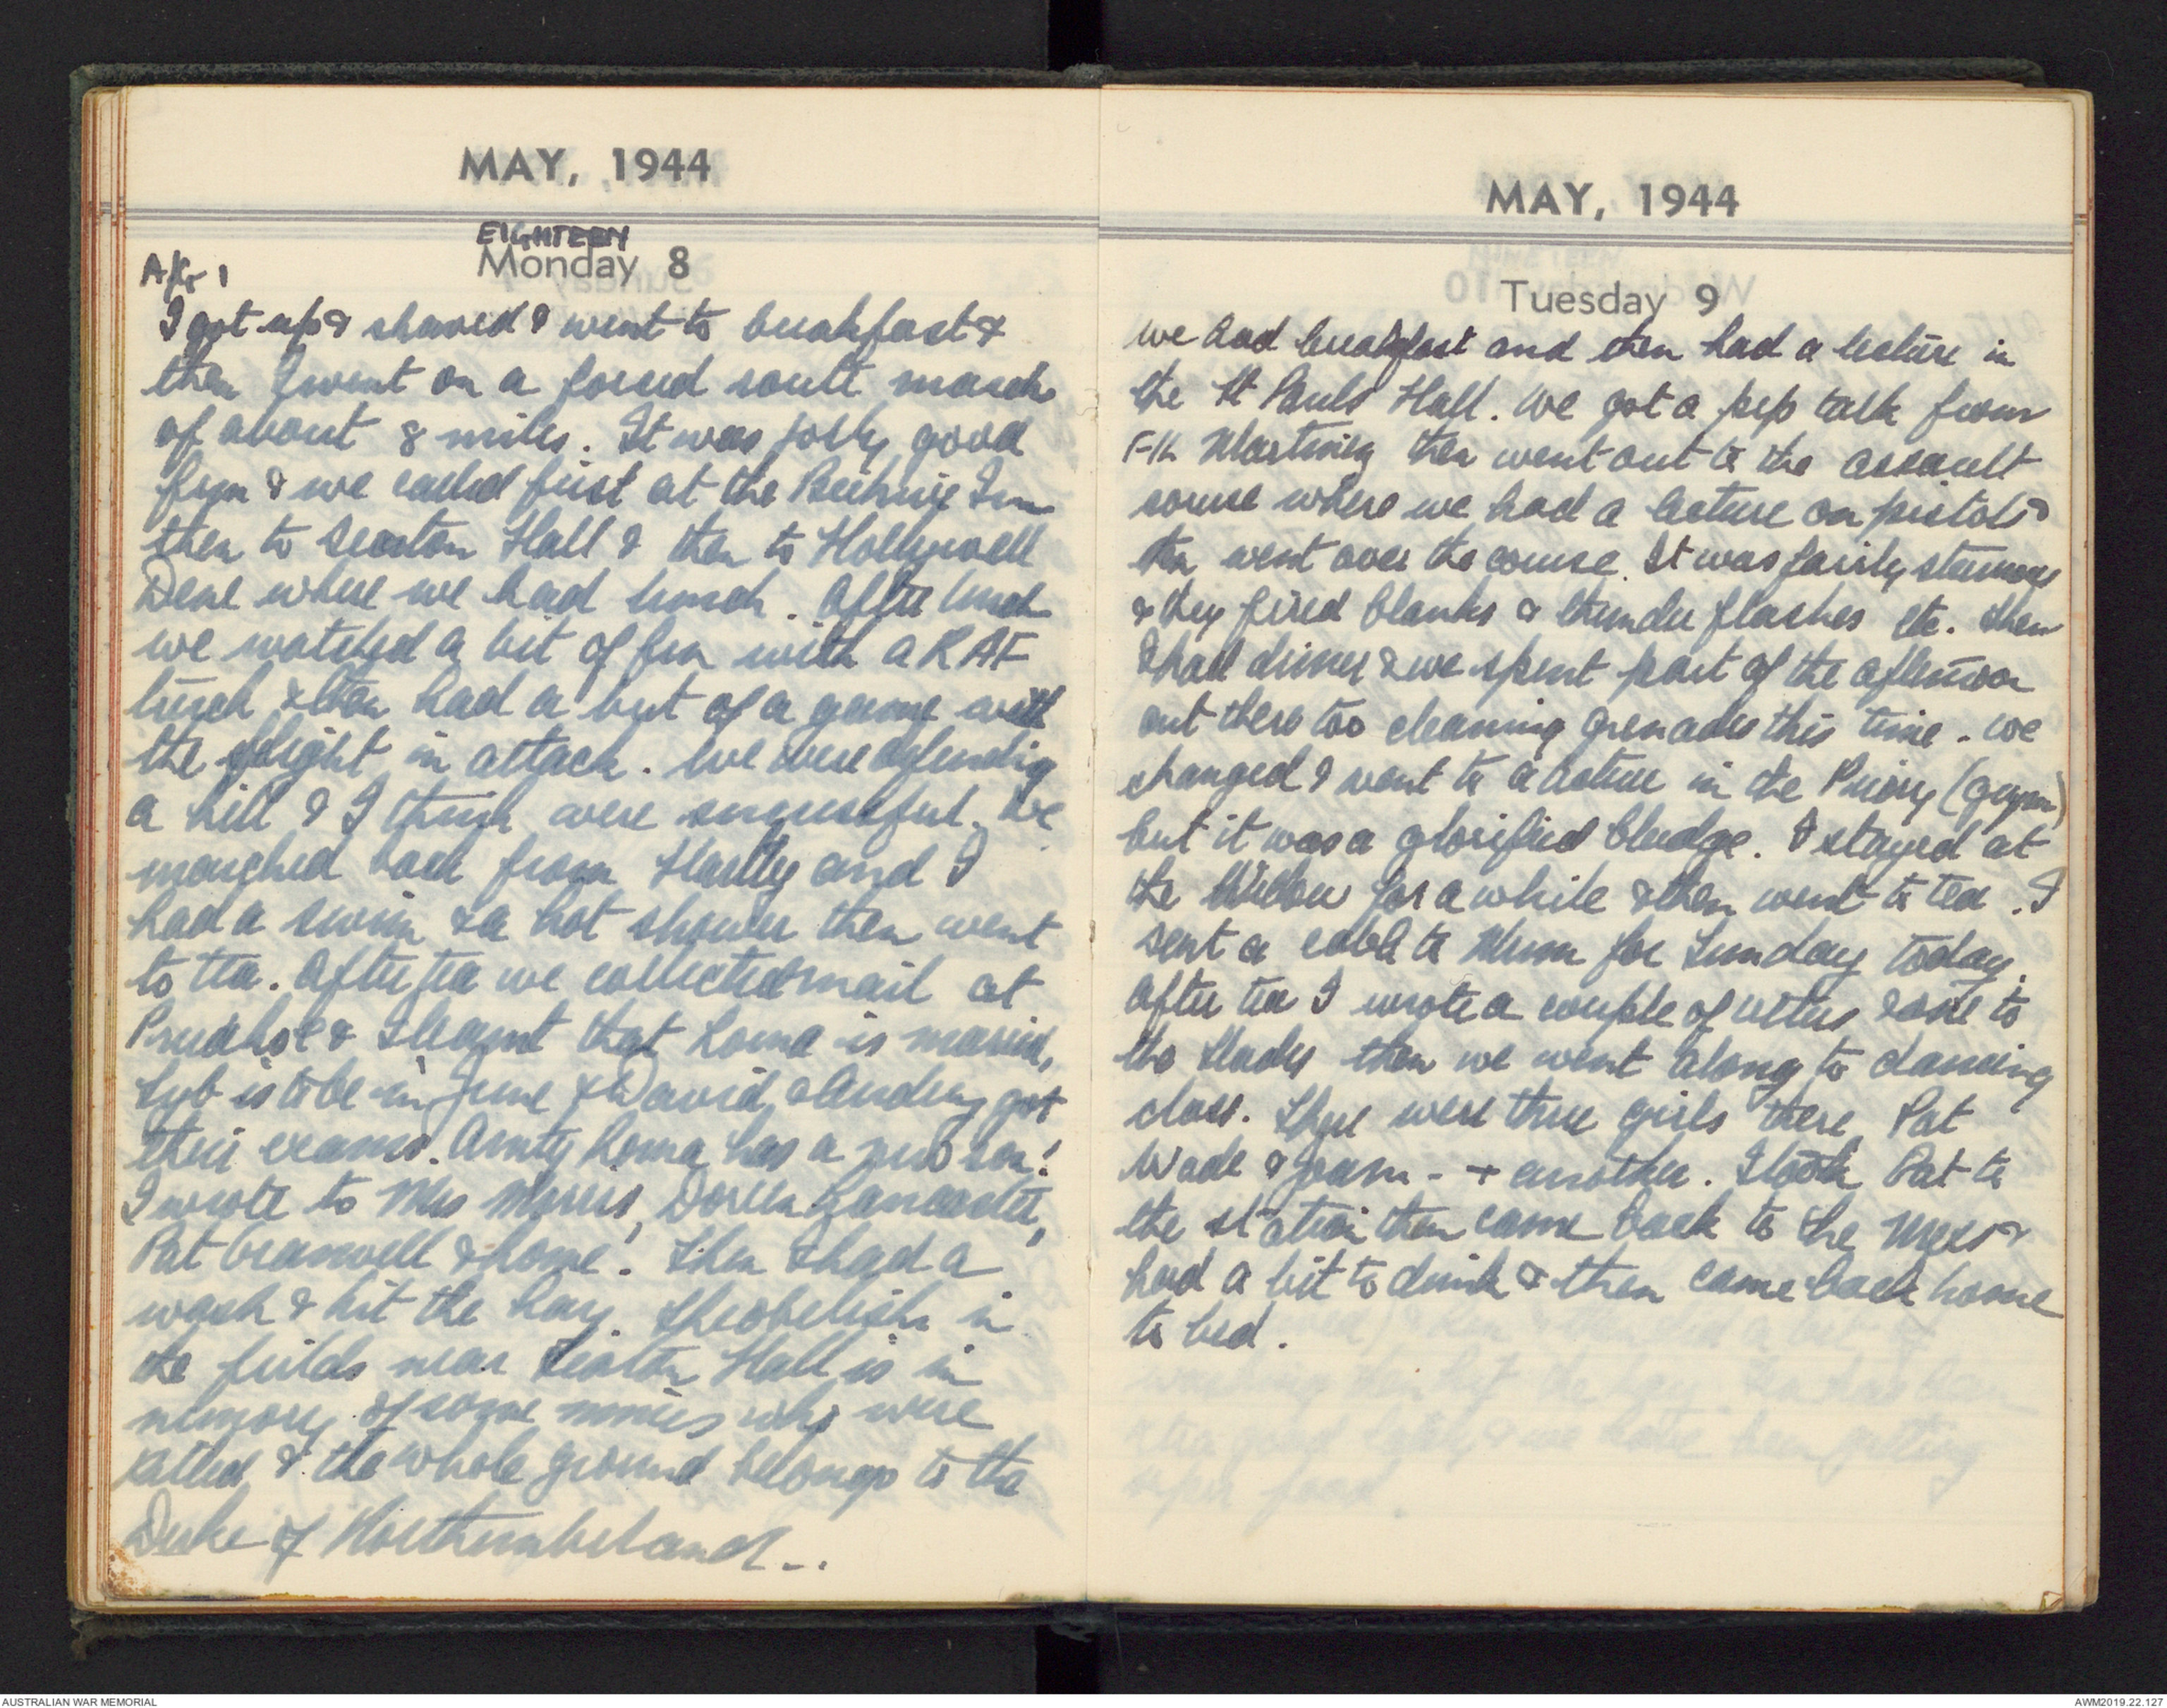 MAY, 1944
EIGHTEEN
Monday 8
I got up & shaved & went to breakfast &
then I went on a forced route march
of about 8 miles. It was jolly good
fun & we called first at the Beehive Inn
then to Seaton Hall & then to Hollywell
Dene where we had lunch. After lunch
we watched a bit of fun with a RAF
& then had a bit of a game with
the flight in attack. We were defending
a hill & I think were successful. We
marched back from Hartley and I
had a swim & a hot shower then went
to tea. After tea we collected mail at
Prudhoe & I learnt that Roma is married,
Syb is to be in June & David & Audrey got
their exams. Aunty Roma has a new son!
I wrote to Mrs Morris, Doreen Lancaster,
Pat Cranwell & home. Then I had a
wash & hit the hay. The obelisk in
the fields near Seaton Hall is in
memory of some miners who were
killed & the whole ground belongs to the
Duke of Northumberland ..
MAY, 1944
Tuesday 9
We had breakfast and then had a lecture in
the St Pauls Hall. We got a pep talk from
then went out to the assault
course where we had a lecture on pistols &
then went over the course. It was fairly strenuous
& they fired blanks & thunder flashes etc. Then
I had dinner & we spent part of the afternoon
out there too cleaning grenades this time. We
changed & went to a lecture in the Priory (gym)
but it was a glorified bludge. I stayed at
the for a while & then went to tea. I
sent a cable to Mum for Sunday today.
After tea I wrote a couple of letters & one to
the Slades then we went along to dancing
class. There were three girls there, Pat
Wade & Joan - + another. I took Pat to
the station then came back to the Mess &
had a bit to drink & then came back home
to bed.
AUSTRALIAN WAR MEMORIAL
AWM2019.22.127